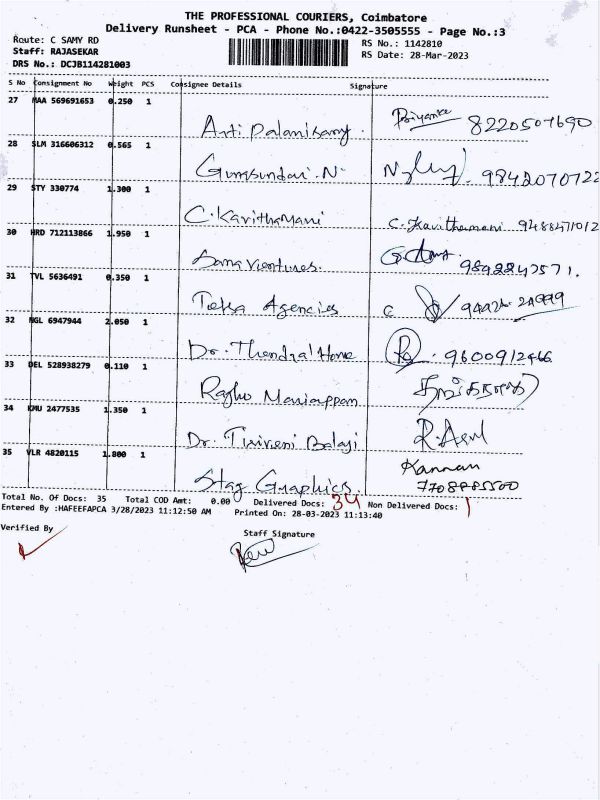 THE PROFESSIONAL COURIERS, Coimbatore
Delivery Runsheet - PCA - Phone No.:0422-3505555 - Page No.:3
Route: C SAMY RD
RS No.: 1142810
Staff: RAJASEKAR
RS Date: 28-Mar-2023
DRS No.: DCJB114281003
S No Consignment No Weight PCS Consignee Details Signature
27 MAA 569691653 0.250 1
Arti Palanisamy. Priyanka 8220507690
28 SLM 316606312 0.565 1
Gunasundari.N
29 STY 330774 1.300 1
C.Kavithamani C.Kavithamani
30 HRD 712113866 1.950 1
Sama Ventures.
31 TVL 5636491 0.350 1
Agencies
32 NGL 6947944 2.050 1
Dr. Thendral Home 9600912466
33 DEL 528938279 0.110 1
34 KMU 2477535 1.350 1
Dr. Balaji
35 VLR 4820115 1.800 1
Stag Graphics. Kannan
Total No. Of Docs: 35 Total COD Amt: 0.00 Delivered Docs: 34 Non Delivered Docs: 1
Entered By :HAFEEFAPCA 3/28/2023 11:12:50 AM Printed On: 28-03-2023 11:13:40
Verified By
Staff Signature